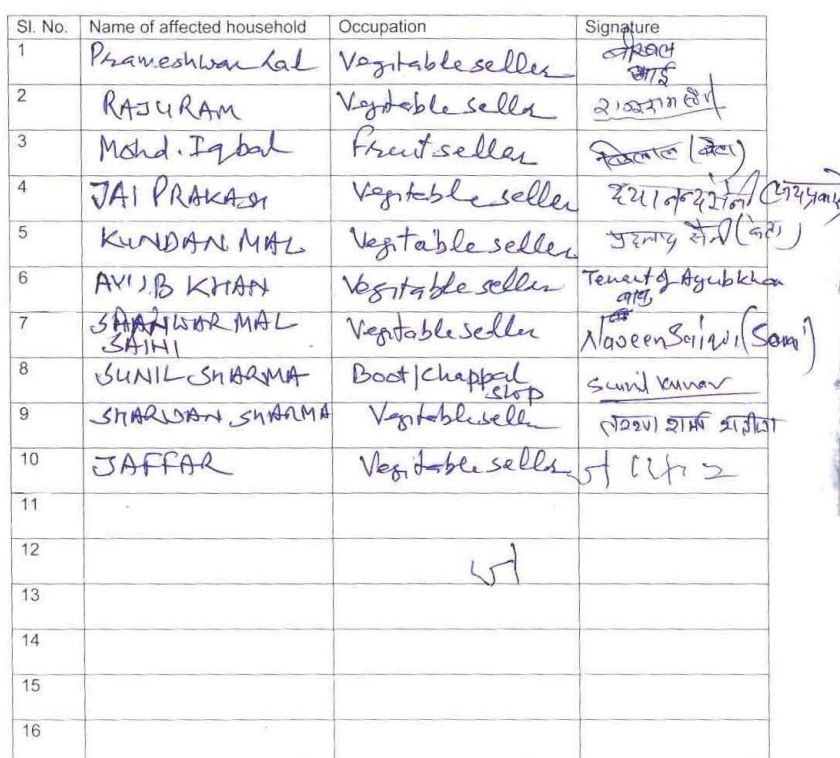 Sl. No. Name of affected household Occupation Signature
1 Prameshwar Lal Vegitable seller
भाई
2 RAJURAM Vegitable seller
3 Mohd. Iqbal Fruit seller (बेटा)
4 JAI PRAKASH Vegitable seller दयानन्द सैनी
5 KUNDAN MAL Vegitable seller प्रहलाद सैनी (बेटा)
6 AYUB KHAN Vegitable seller Tenent of Ayub khan
7 SAANWAR MAL Vegitable seller Naveen Saini (Son)
SAINI
8 SUNIL SHARMA Boot/Chappal Sunil Kumar
shop
9 SHARWAN SHARMA Vegitable seller शर्मा
10 JAFFAR Vegitable seller
11
12
13
14
15
16